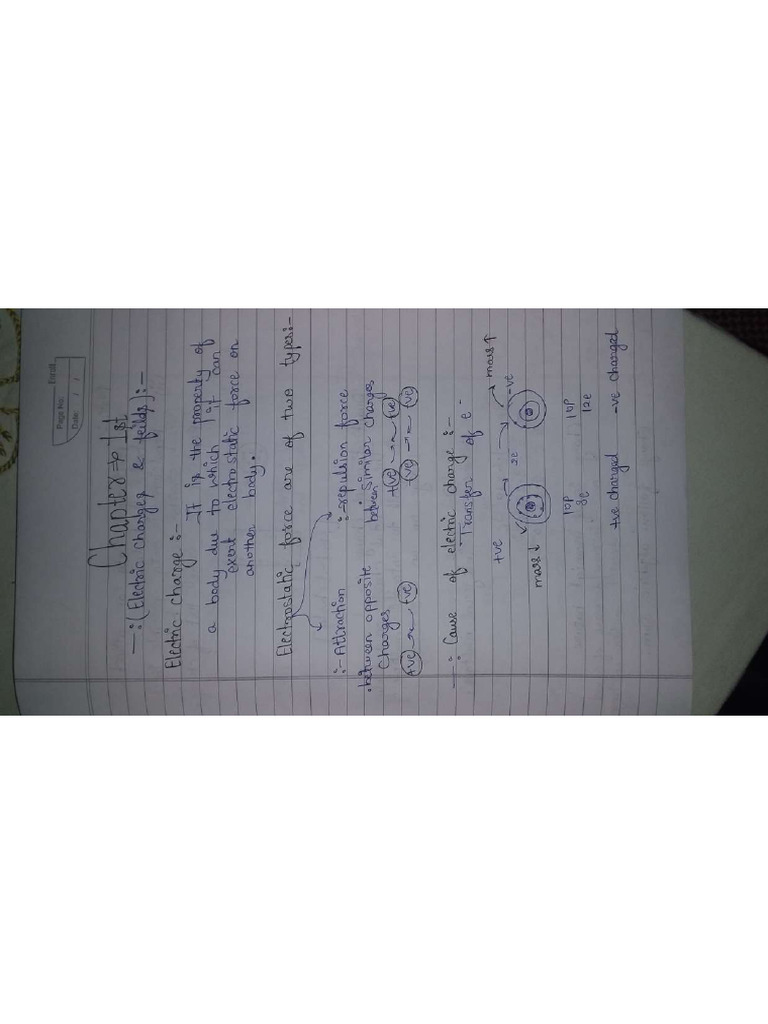 Enroll
Page No:
Date: / /
Chapter → 1st
—:(Electric Charges & feilds):—
Electric Charge :-
It is the property of
a body due to which it can
exert electrostatic force on
another body.
Electrostatic force are of two types:-
:- Attraction :- repulsion force
between opposite between similar charges
Charges
+ve -ve +ve
+ve -ve -ve
—: Cause of electric charge :-
Transfer of e-
+ve 2e -ve mass↑
mass↓
10p 10p
8e 12e
+ve charged -ve charged